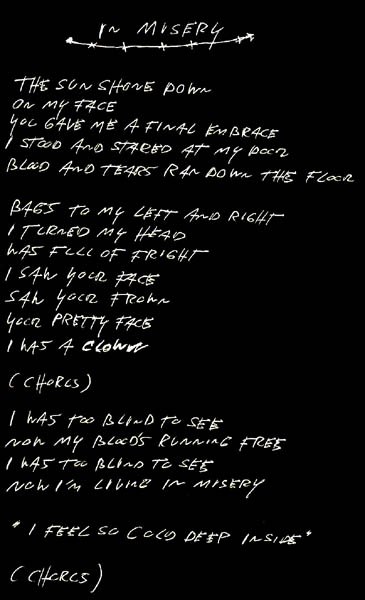 IN MISERY
THE SUN SHONE DOWN
ON MY FACE
YOU GAVE ME A FINAL EMBRACE
I STOOD AND STARED AT MY DOOR
BLOOD AND TEARS RAN DOWN THE FLOOR
BAGS TO MY LEFT AND RIGHT
I TURNED MY HEAD
WAS FULL OF FRIGHT
I SAW YOUR FACE
SAW YOUR FROWN
YOUR PRETTY FACE
I WAS A CLOWN
(CHORUS)
I WAS TOO BLIND TO SEE
NOW MY BLOOD'S RUNNING FREE
I WAS TOO BLIND TO SEE
NOW I'M LIVING IN MISERY
"I FEEL SO COLD DEEP INSIDE"
(CHORUS)